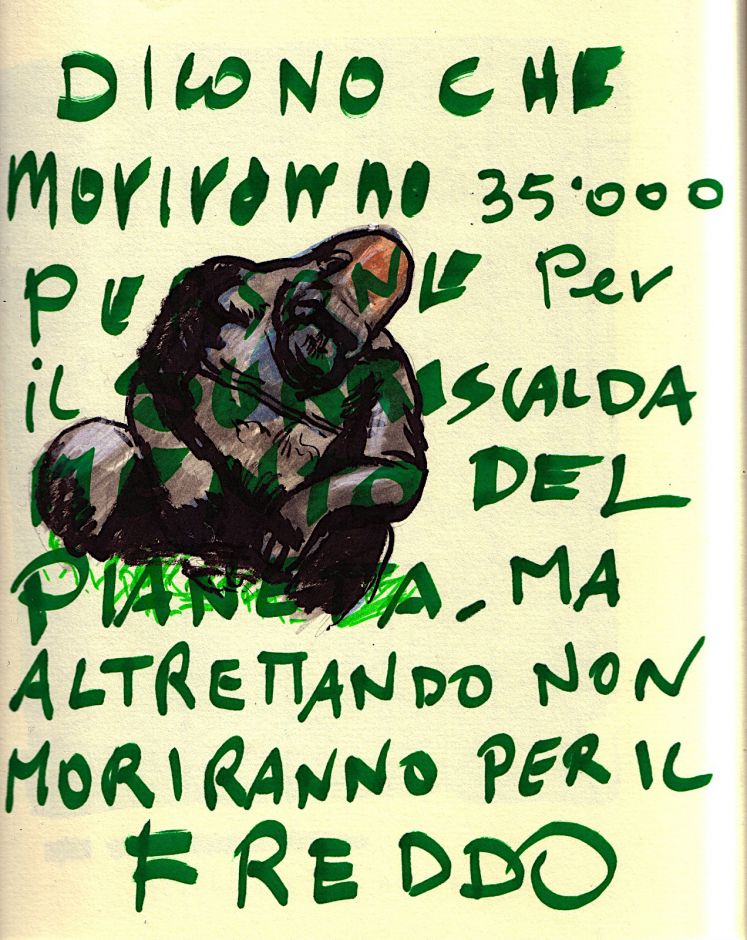 DICONO CHE
MORIRANNO 35'000
PERSONE Per
iL SURRISCALDA
MENTO DEL
PIANETA. MA
ALTRETTANDO NON
MORIRANNO PER IL
FREDDO